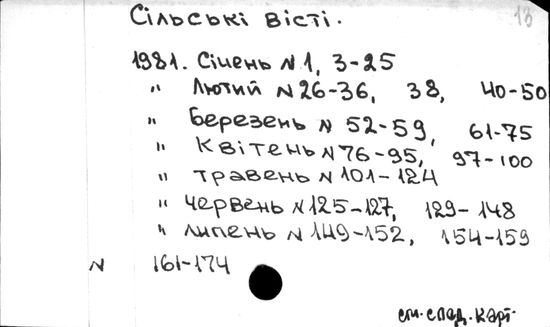 Сільські вісті. 13
1981. Січень N 1, 3-25
" Лютий N 26-36, 38, 40-50
" Березень N 52-59, 61-75
" Квітень N 76-95, 97-100
" травень N 101-124
" червень N 125-127, 129-148
" липень N 149-152, 154-159
N 161-174
см. след. карт.